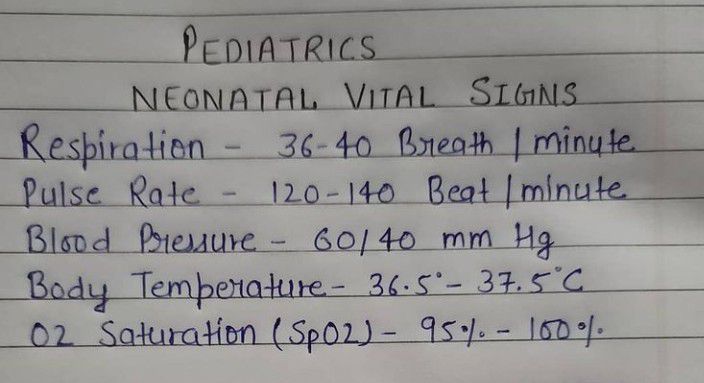 PEDIATRICS
NEONATAL VITAL SIGNS
Respiration - 36-40 Breath / minute
Pulse Rate - 120-140 Beat / minute
Blood Pressure - 60/40 mm Hg
Body Temperature - 36.5° - 37.5°C
O2 Saturation (SpO2) - 95% - 100%